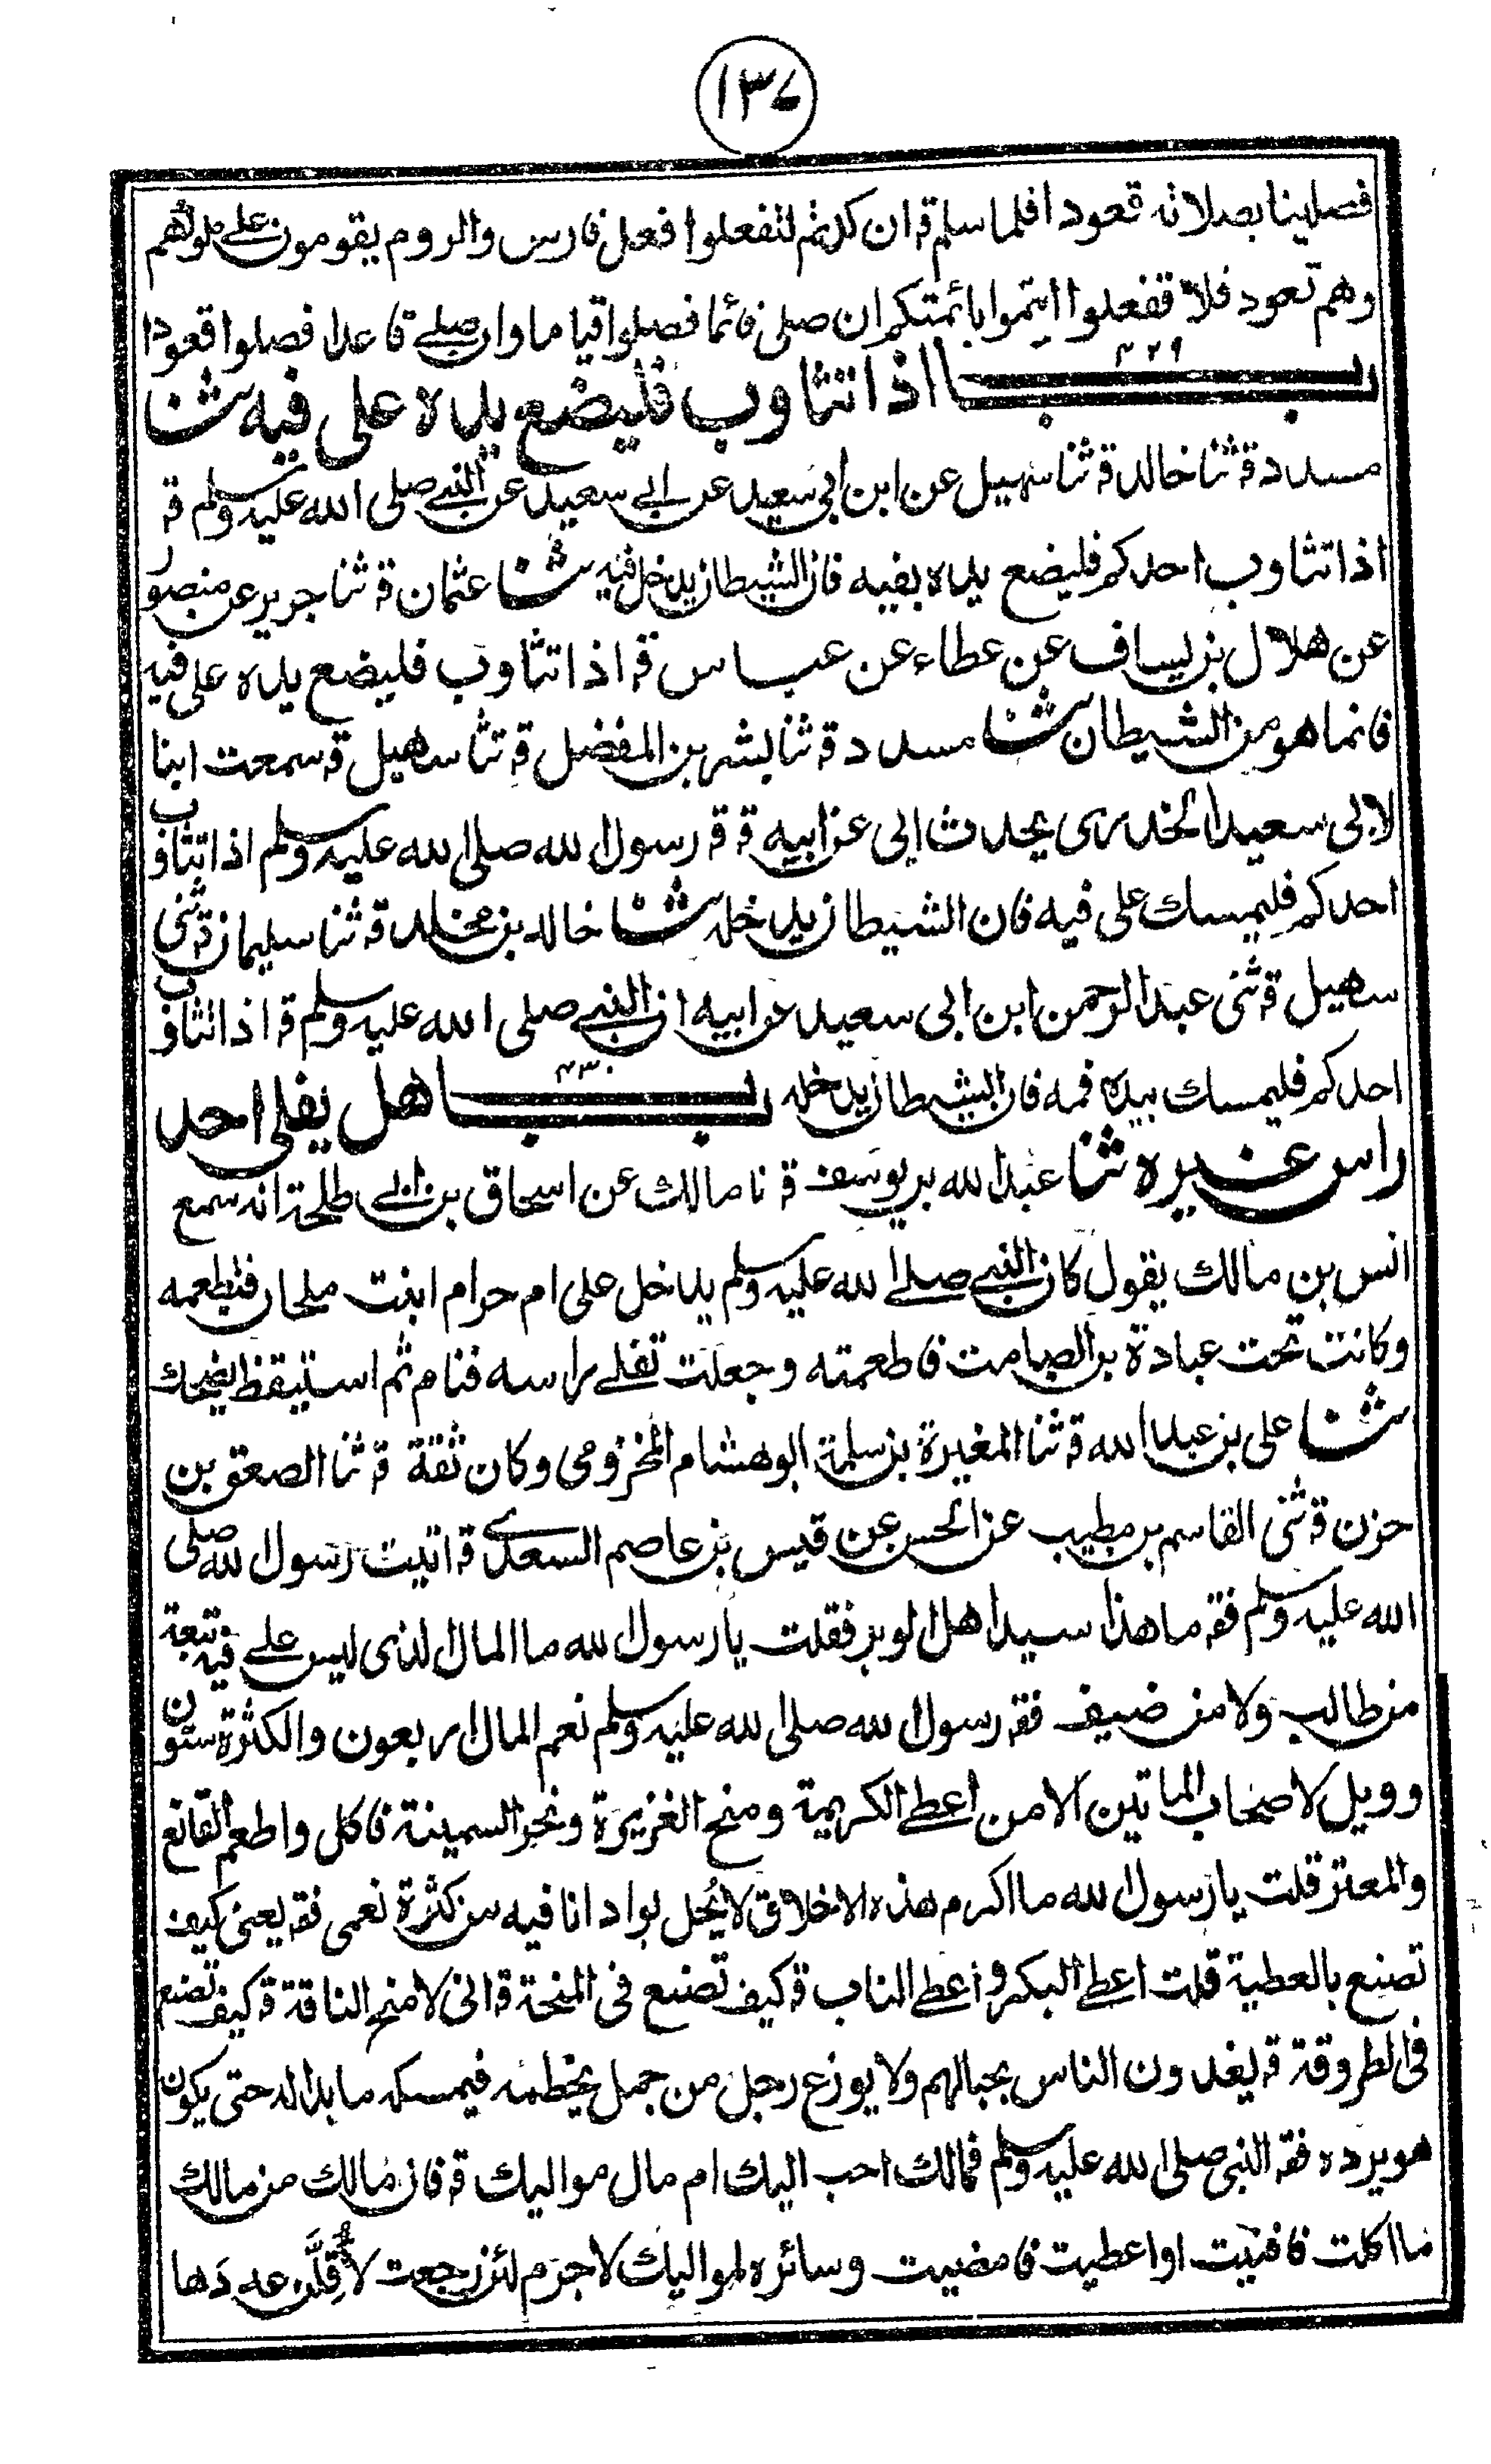 ١٣٧
فصلينا بصلاته قعودا فلما سلم قـ ان كدتم لتفعلوا فعل فارس والروم يقومون على ملوكهم
وهم قعود فلا تفعلوا ايتموا بائمتكم ان صلى قائما فصلوا قياما وان صلى قاعدا فصلوا قعودا
٤٢٩
بــاب اذا تثاوب فليضع يده على فيه ثنا
مسدد قـ ثنا خالد قـ ثنا سهيل عن ابن ابي سعيد عن ابي سعيد عن النبي صلى الله عليه وسلم قـ
اذا تثاوب احدكم فليضع يده بفيه فان الشيطان يدخل فيه ثنا عثمان قـ ثنا جرير عن منصور
عن هلال بن يساف عن عطاء عن عباس قـ اذا تثاوب فليضع يده على فيه
فانما هو من الشيطان ثنا مسدد قـ ثنا بشر بن المفضل قـ ثنا سهيل قـ سمعت ابنا
لابي سعيد الخدري يحدث ابي عن ابيه قـ قـ رسول الله صلى الله عليه وسلم اذا تثاوب
احدكم فليمسك على فيه فان الشيطان يدخله ثنا خالد بن مخلد قـ ثنا سليمان قـ ثنى
سهيل قـ ثنى عبد الرحمن ابن ابي سعيد عن ابيه ان النبي صلى الله عليه وسلم قـ اذا تثاوب
احدكم فليمسك بيده فمه فان الشيطان يدخله بــاب هل يفلى احد
٤٣٠
راس غيره ثنا عبد الله بن يوسف قـ نا مالك عن اسحاق بن ابي طلحة انه سمع
انس بن مالك يقول كان النبي صلى الله عليه وسلم يدخل على ام حرام ابنت ملحان فتطعمه
وكانت تحت عبادة بن الصامت فاطعمته وجعلت تفلى راسه فنام ثم استيقظ يضحك
ثنا علي بن عبد الله قـ ثنا المغيرة بن سلمة ابو هشام المخزومي وكان ثقة قـ ثنا الصعق بن
حزن قـ ثنى القاسم بن مطيب عن الحسن عن قيس بن عاصم السعدي قـ اتيت رسول الله صلى
الله عليه وسلم فقـ ما هذا سيد اهل الوبر فقلت يا رسول الله ما المال الذي ليس على فيه تبعة
من طالب ولا من ضيف فقـ رسول الله صلى الله عليه وسلم نعم المال اربعون والكثرة ستون
وويل لاصحاب الماتين الا من اعطى الكريمة ومنح الغزيرة ونحر السمينة فاكل واطعم القانع
والمعتر قلت يا رسول الله ما اكرم هذه الاخلاق لا يُحل بواد انا فيه من كثرة نعمي فقـ يعنى كيف
تصنع بالعطية قلت اعطى البكر واعطى الناب قـ كيف تصنع في المنحة قـ اني لامنح الناقة قـ كيف تصنع
في الطروقة قـ يغدون الناس بحبالهم ولا يوزع رجل من جمل يختطمه فيمسكه ما بدا له حتى يكون
هو يرده فقـ النبي صلى الله عليه وسلم فمالك احب اليك ام مال مواليك قـ فان مالك من مالك
ما اكلت فافنيت او اعطيت فامضيت وسائره لمواليك لا جرم لئن رجعت لاُقِلَّن عددها